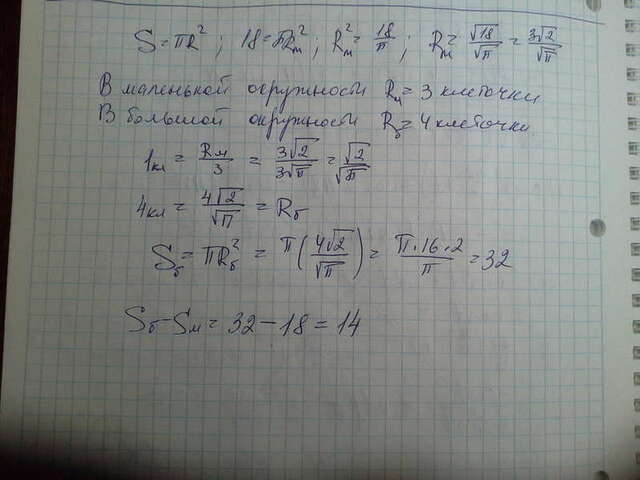 S = πR²; 18 = πRм²; Rм² = 18/π; Rм = √18/√π = 3√2/√π
В маленькой окружности Rм = 3 клеточки
В большой окружности Rб = 4 клеточки
1кл = Rм/3 = 3√2/3√π = √2/√π
4кл = 4√2/√π = Rб
Sб = πRб² = π(4√2/√π) = π·16·2/π = 32
Sб - Sм = 32 - 18 = 14